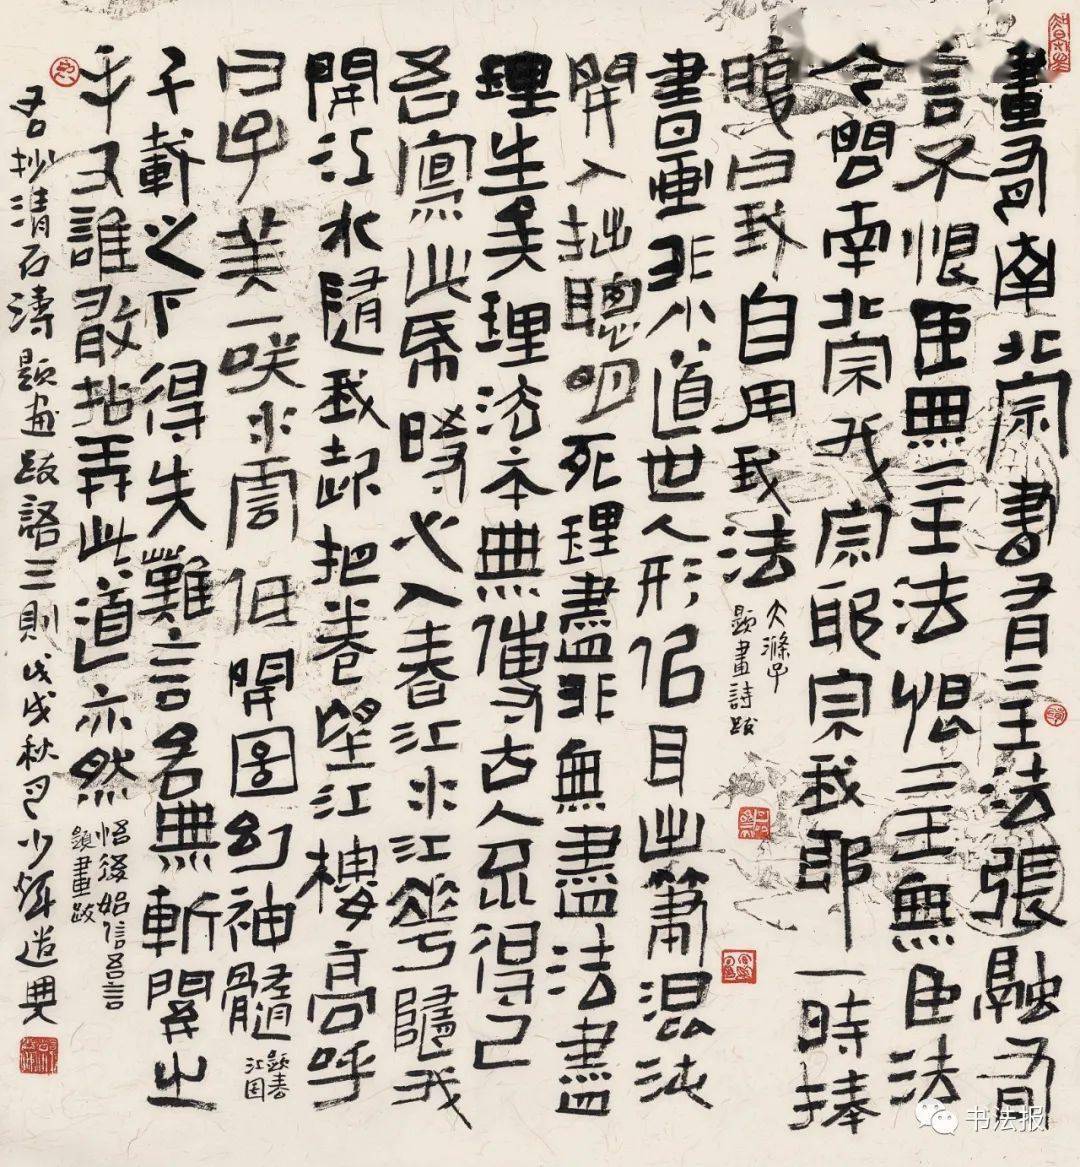 畫有南北宗書有二王法張融有
言不恨臣無二王法恨二王無臣法
今問南北宗我宗耶宗我耶一時捧
腹曰我自用我法
大滌子
題畫詩跋
書畫非小道世人形似耳出筆混沌
開入拙聰明死理盡非無盡法盡
理生矣理法本無傳古人不得已
吾寫此紙時心入春江水江花隨我
開江水隨我起把卷望江樓高呼
曰子美一笑水雲低開圖幻神髓
題春
江圖
千載之下得失難言名無斬關出
手又誰敢拈弄此道亦然
悟後始信吾言
題畫跋
右抄清石濤題畫跋語三則戊戌秋月少
书法报